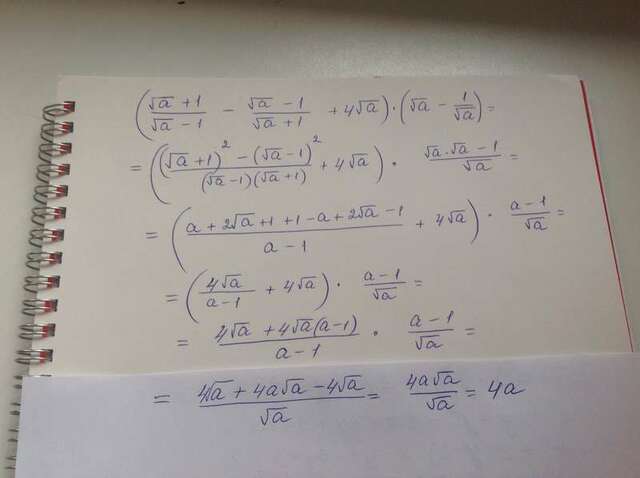 ((√a + 1)/(√a − 1) − (√a − 1)/(√a + 1) + 4√a) · (√a − 1/√a) =
= (((√a + 1)² − (√a − 1)²)/((√a − 1)(√a + 1)) + 4√a) · (√a · √a − 1)/√a =
= ((a + 2√a + 1 + 1 − a + 2√a − 1)/(a − 1) + 4√a) · (a − 1)/√a =
= (4√a/(a − 1) + 4√a) · (a − 1)/√a =
= (4√a + 4√a(a − 1))/(a − 1) · (a − 1)/√a =
= (4√a + 4a√a − 4√a)/√a = 4a√a/√a = 4a